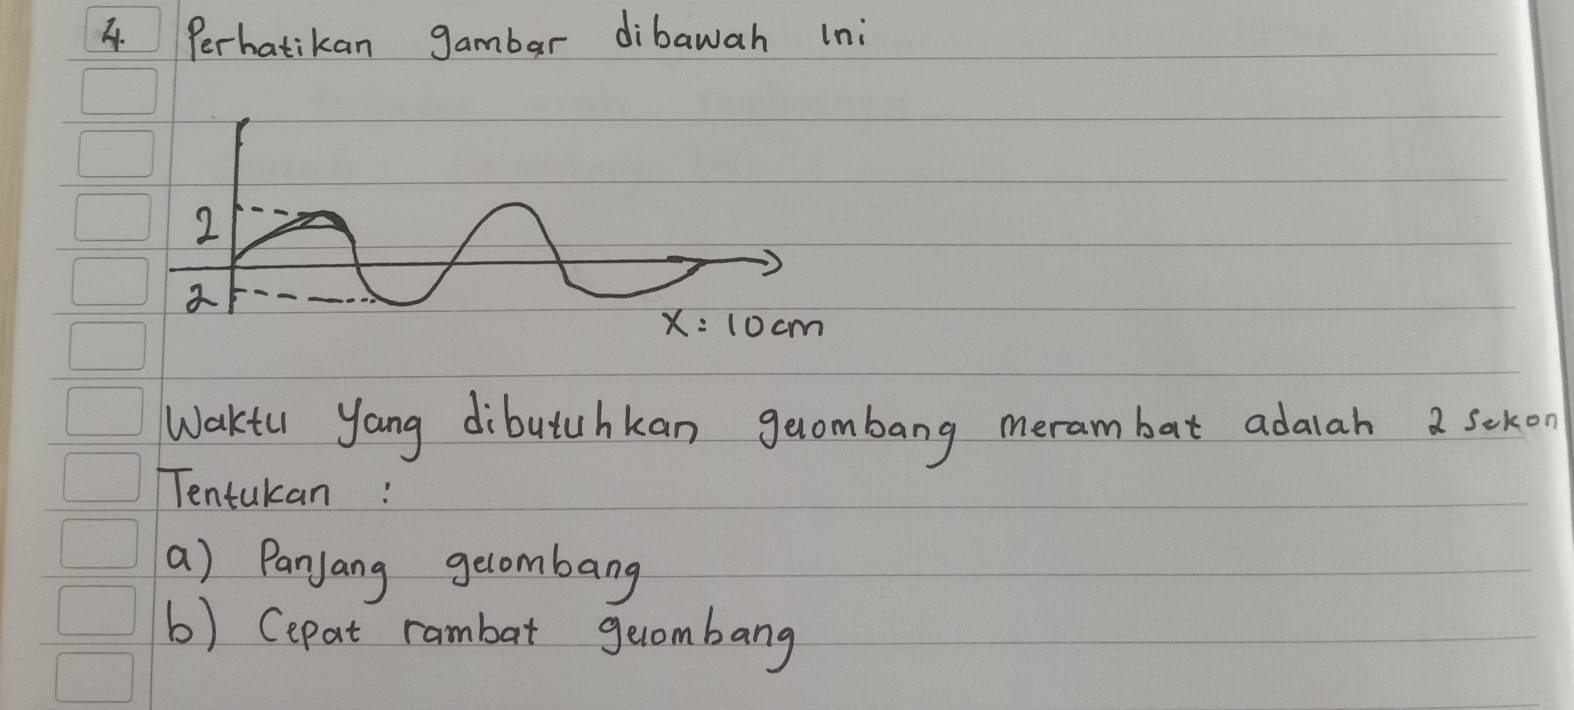 4. Perhatikan gambar dibawah ini
2
2
X = 10 cm
Waktu yang dibutuhkan gelombang merambat adalah 2 sekon
Tentukan :
a) Panjang gelombang
b) Cepat rambat gelombang